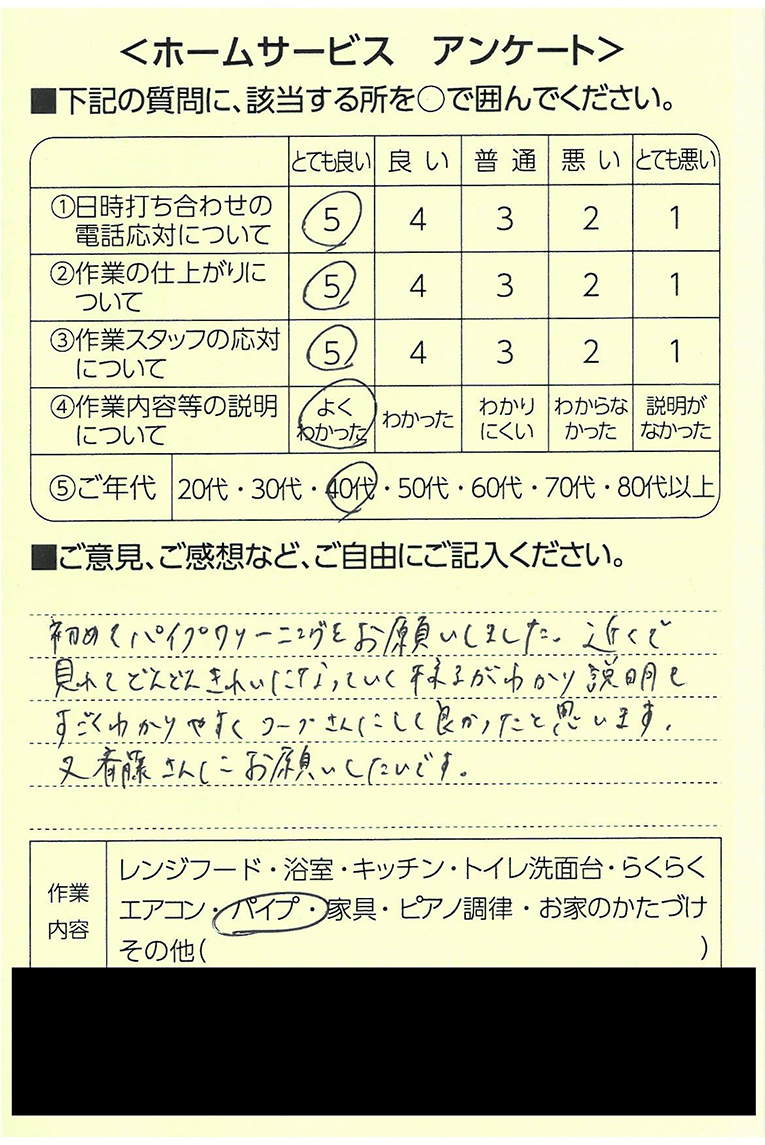 ＜ホームサービス　アンケート＞
■下記の質問に、該当する所を○で囲んでください。
とても良い 良い 普通 悪い とても悪い
①日時打ち合わせの電話応対について 5 4 3 2 1
②作業の仕上がりについて 5 4 3 2 1
③作業スタッフの応対について 5 4 3 2 1
④作業内容等の説明について よくわかった わかった わかりにくい わからなかった 説明がなかった
⑤ご年代 20代・30代・40代・50代・60代・70代・80代以上
■ご意見、ご感想など、ご自由にご記入ください。
初めてパイプクリーニングをお願いしました。近くで
見れてどんどんきれいになっていく様子がわかり説明も
すごくわかりやすくコープさんにして良かったと思います。
又斉藤さんにお願いしたいです。
作業内容
レンジフード・浴室・キッチン・トイレ洗面台・らくらく
エアコン・パイプ・家具・ピアノ調律・お家のかたづけ
その他( )